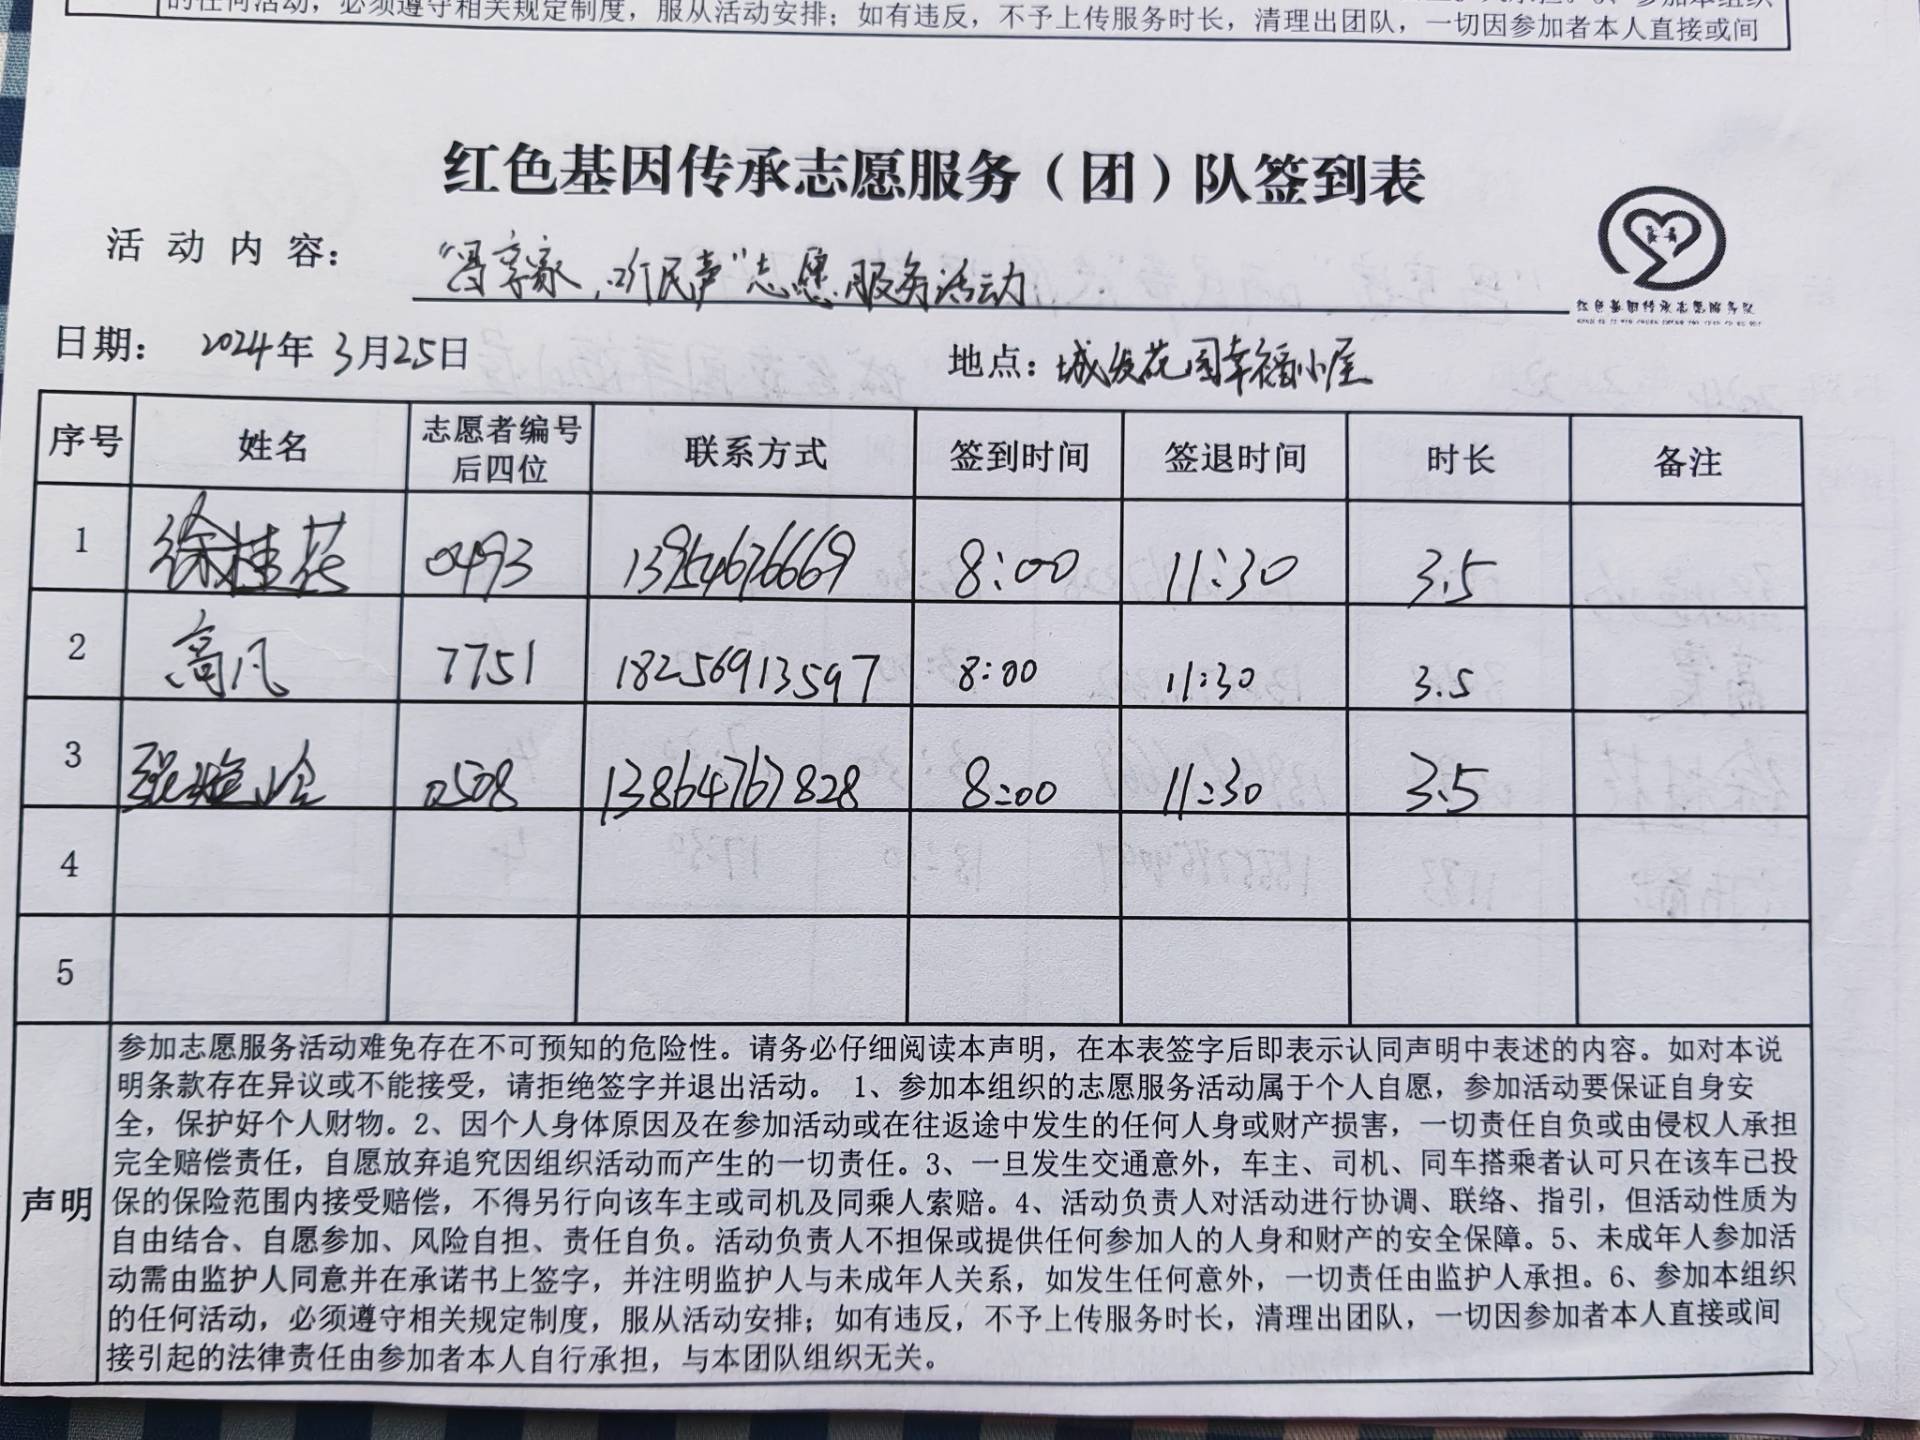 的任何活动，必须遵守相关规定制度，服从活动安排；如有违反，不予上传服务时长，清理出团队，一切因参加者本人直接或间
红色基因传承志愿服务（团）队签到表
活动内容： 享家，听民声"志愿服务活动
红色基因传承志愿服务队
日期： 2024年3月25日 地点：城发花园幸福小屋
序号 姓名 志愿者编号后四位 联系方式 签到时间 签退时间 时长 备注
1 徐桂花 0493 13954676669 8:00 11:30 3.5
2 高凡 7751 18256913597 8:00 11:30 3.5
3 张 0508 13864767828 8:00 11:30 3.5
4
5
声明
参加志愿服务活动难免存在不可预知的危险性。请务必仔细阅读本声明，在本表签字后即表示认同声明中表述的内容。如对本说
明条款存在异议或不能接受，请拒绝签字并退出活动。 1、参加本组织的志愿服务活动属于个人自愿，参加活动要保证自身安
全，保护好个人财物。2、因个人身体原因及在参加活动或在往返途中发生的任何人身或财产损害，一切责任自负或由侵权人承担
完全赔偿责任，自愿放弃追究因组织活动而产生的一切责任。3、一旦发生交通意外，车主、司机、同车搭乘者认可只在该车已投
保的保险范围内接受赔偿，不得另行向该车主或司机及同乘人索赔。4、活动负责人对活动进行协调、联络、指引，但活动性质为
自由结合、自愿参加、风险自担、责任自负。活动负责人不担保或提供任何参加人的人身和财产的安全保障。5、未成年人参加活
动需由监护人同意并在承诺书上签字，并注明监护人与未成年人关系，如发生任何意外，一切责任由监护人承担。6、参加本组织
的任何活动，必须遵守相关规定制度，服从活动安排；如有违反，不予上传服务时长，清理出团队，一切因参加者本人直接或间
接引起的法律责任由参加者本人自行承担，与本团队组织无关。